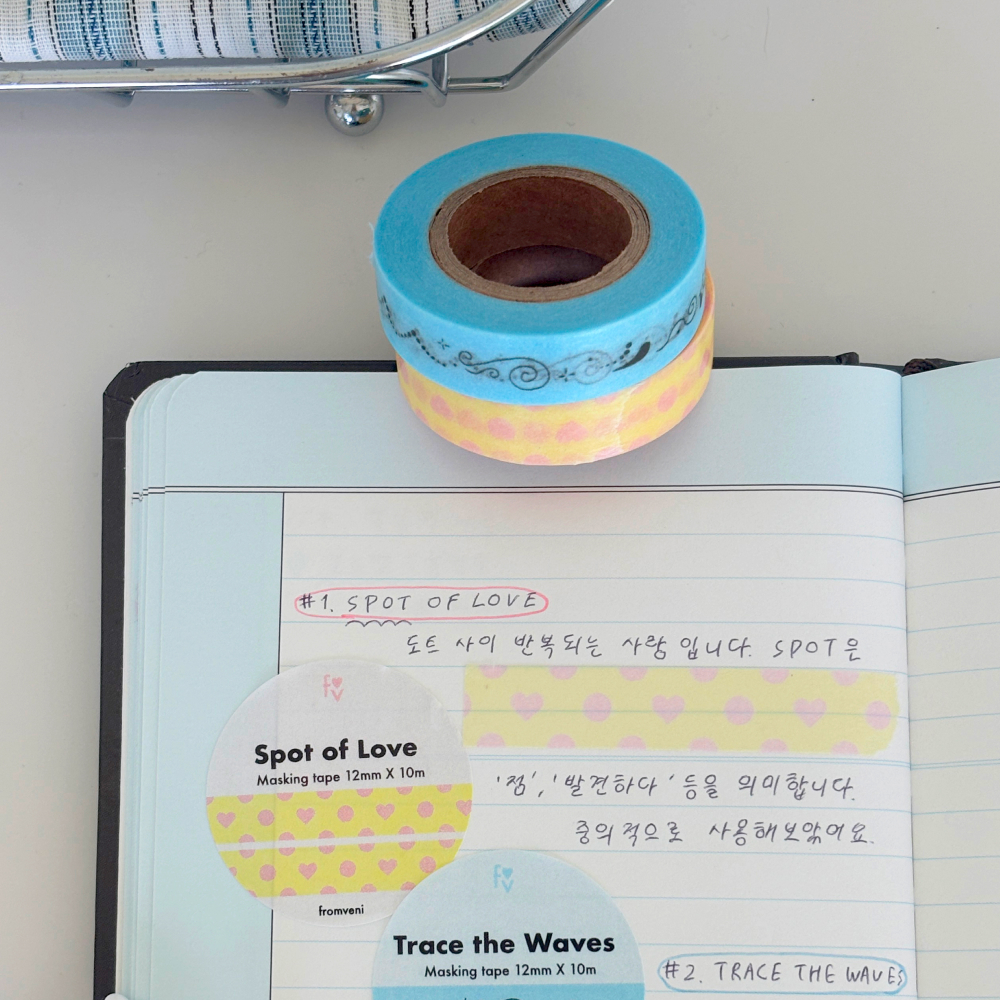 #1. SPOT OF LOVE
도트 사이 반복되는 사람입니다. SPOT은
'점', '발견하다' 등을 의미합니다.
중의적으로 사용해보았어요.
fv
Spot of Love
Masking tape 12mm X 10m
fromveni
fv
Trace the Waves
Masking tape 12mm X 10m
#2. TRACE THE WAVES